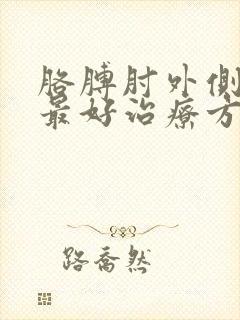 胳膊肘外侧
最好治療方
路喬然